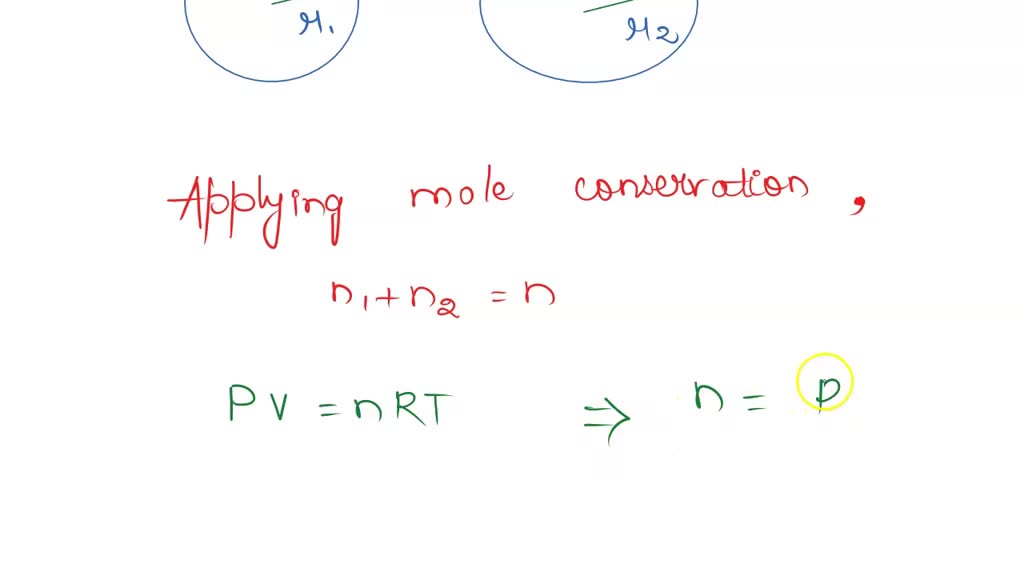 r₁ r₂
Applying mole conservation,
n₁+n₂ = n
PV = nRT ⇒ n = P